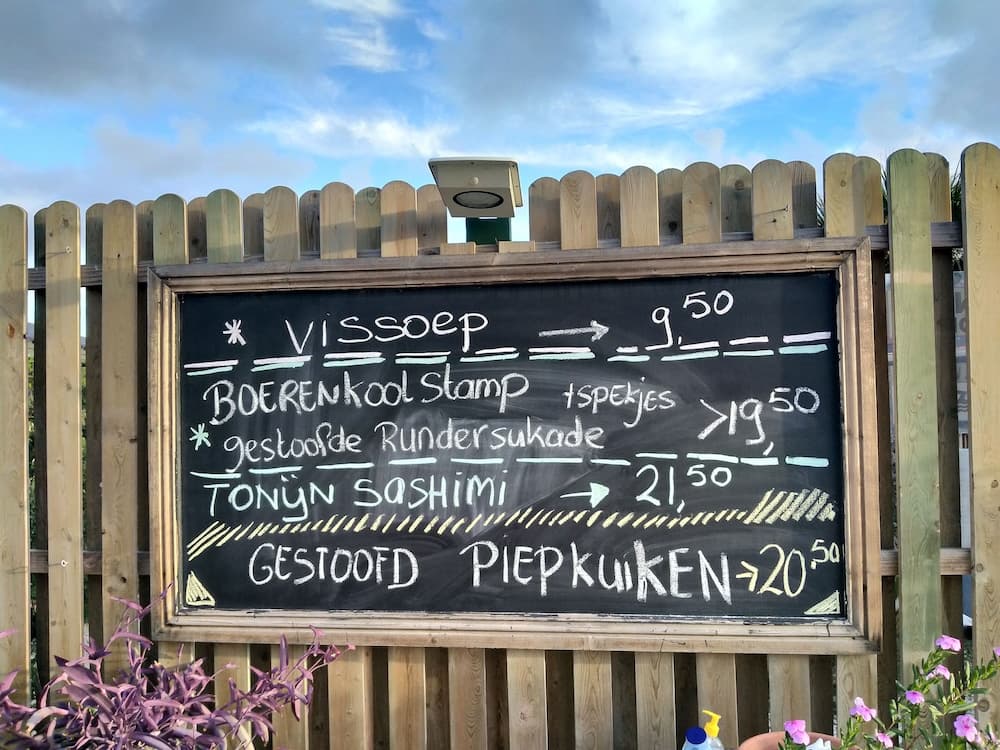 * Vissoep → 9,50
BOERENkool Stamp +spekjes >19,50
* gestoofde Rundersukade
TONIJN SASHIMI → 21,50
GESTOOFD PIEPKUIKEN → 20,50